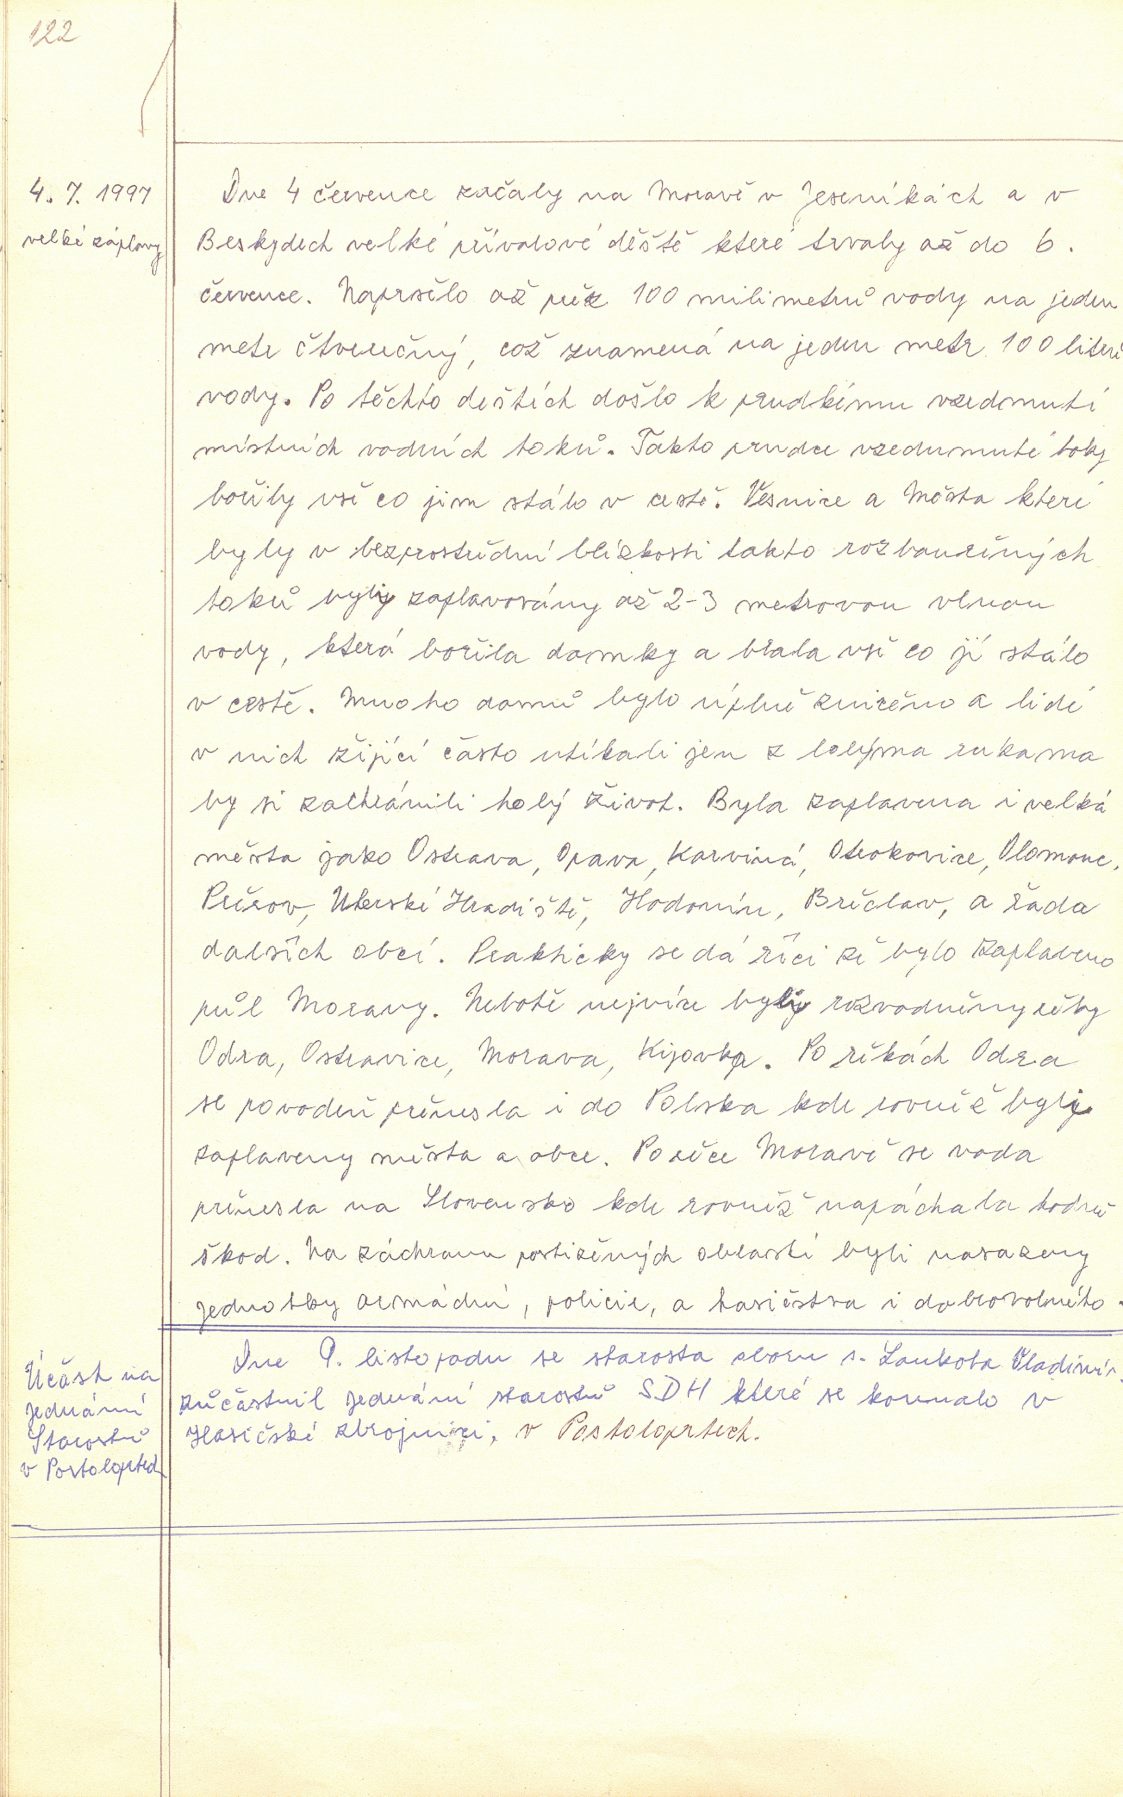 122
4. 7. 1997
velké záplavy
Dne 4 července začaly na Moravě v Jeseníkách a v
Beskydech velké přívalové děště které trvaly až do 6.
července. Napršelo až přez 100 milimetrů vody na jeden
metr čtverečný, což znamená na jeden metr 100 literů
vody. Po těchto deštích došlo k prudkému vzedmutí
místních vodních toků. Takto prudce vzedmuté toky
bořily vše co jim stálo v cestě. Vesnice a Města které
byly v bezprostřdní blízkosti takto rozbouřených
toků byly zaplavovány až 2-3 metrovou vlnou
vody, která bořila domky a brala vše co jí stálo
v cestě. Mnoho domů bylo úplně zničeno a lidé
v nich žijící často utíkali jen z holýma rukama
by si zachránili holý život. Byla zaplavena i velká
města jako Ostrava, Opava, Karviná, Otrokovice, Olomouc,
Přerov, Uherské Hradiště, Hodonín, Břeclav, a řada
dalších obcí. Prakticky se dá říci že bylo zaplaveno
půl Moravy. Nebotě nejvíce byly rozvodněny řeky
Odra, Ostravice, Morava, Kijovka. Po řekách Odra
se povodeň přenesla i do Polska kde rovněž byly
zaplaveny města a obce. Po řece Moravě se voda
přenesla na Slovensko kde rovněž napáchala hodně
škod. Na záchranu postižených oblastí byli nasazeny
jednotky armádní, policie, a hasičstva i dobrovolného.
Účast na
jednání
Starostů
v Postoloprtech
Dne 9. listopadu se starosta sboru s. Loukota Vladimír
zůčastnil jednání starostů SDH které se konnalo v
Hasičské zbrojnici, v Postoloprtech.